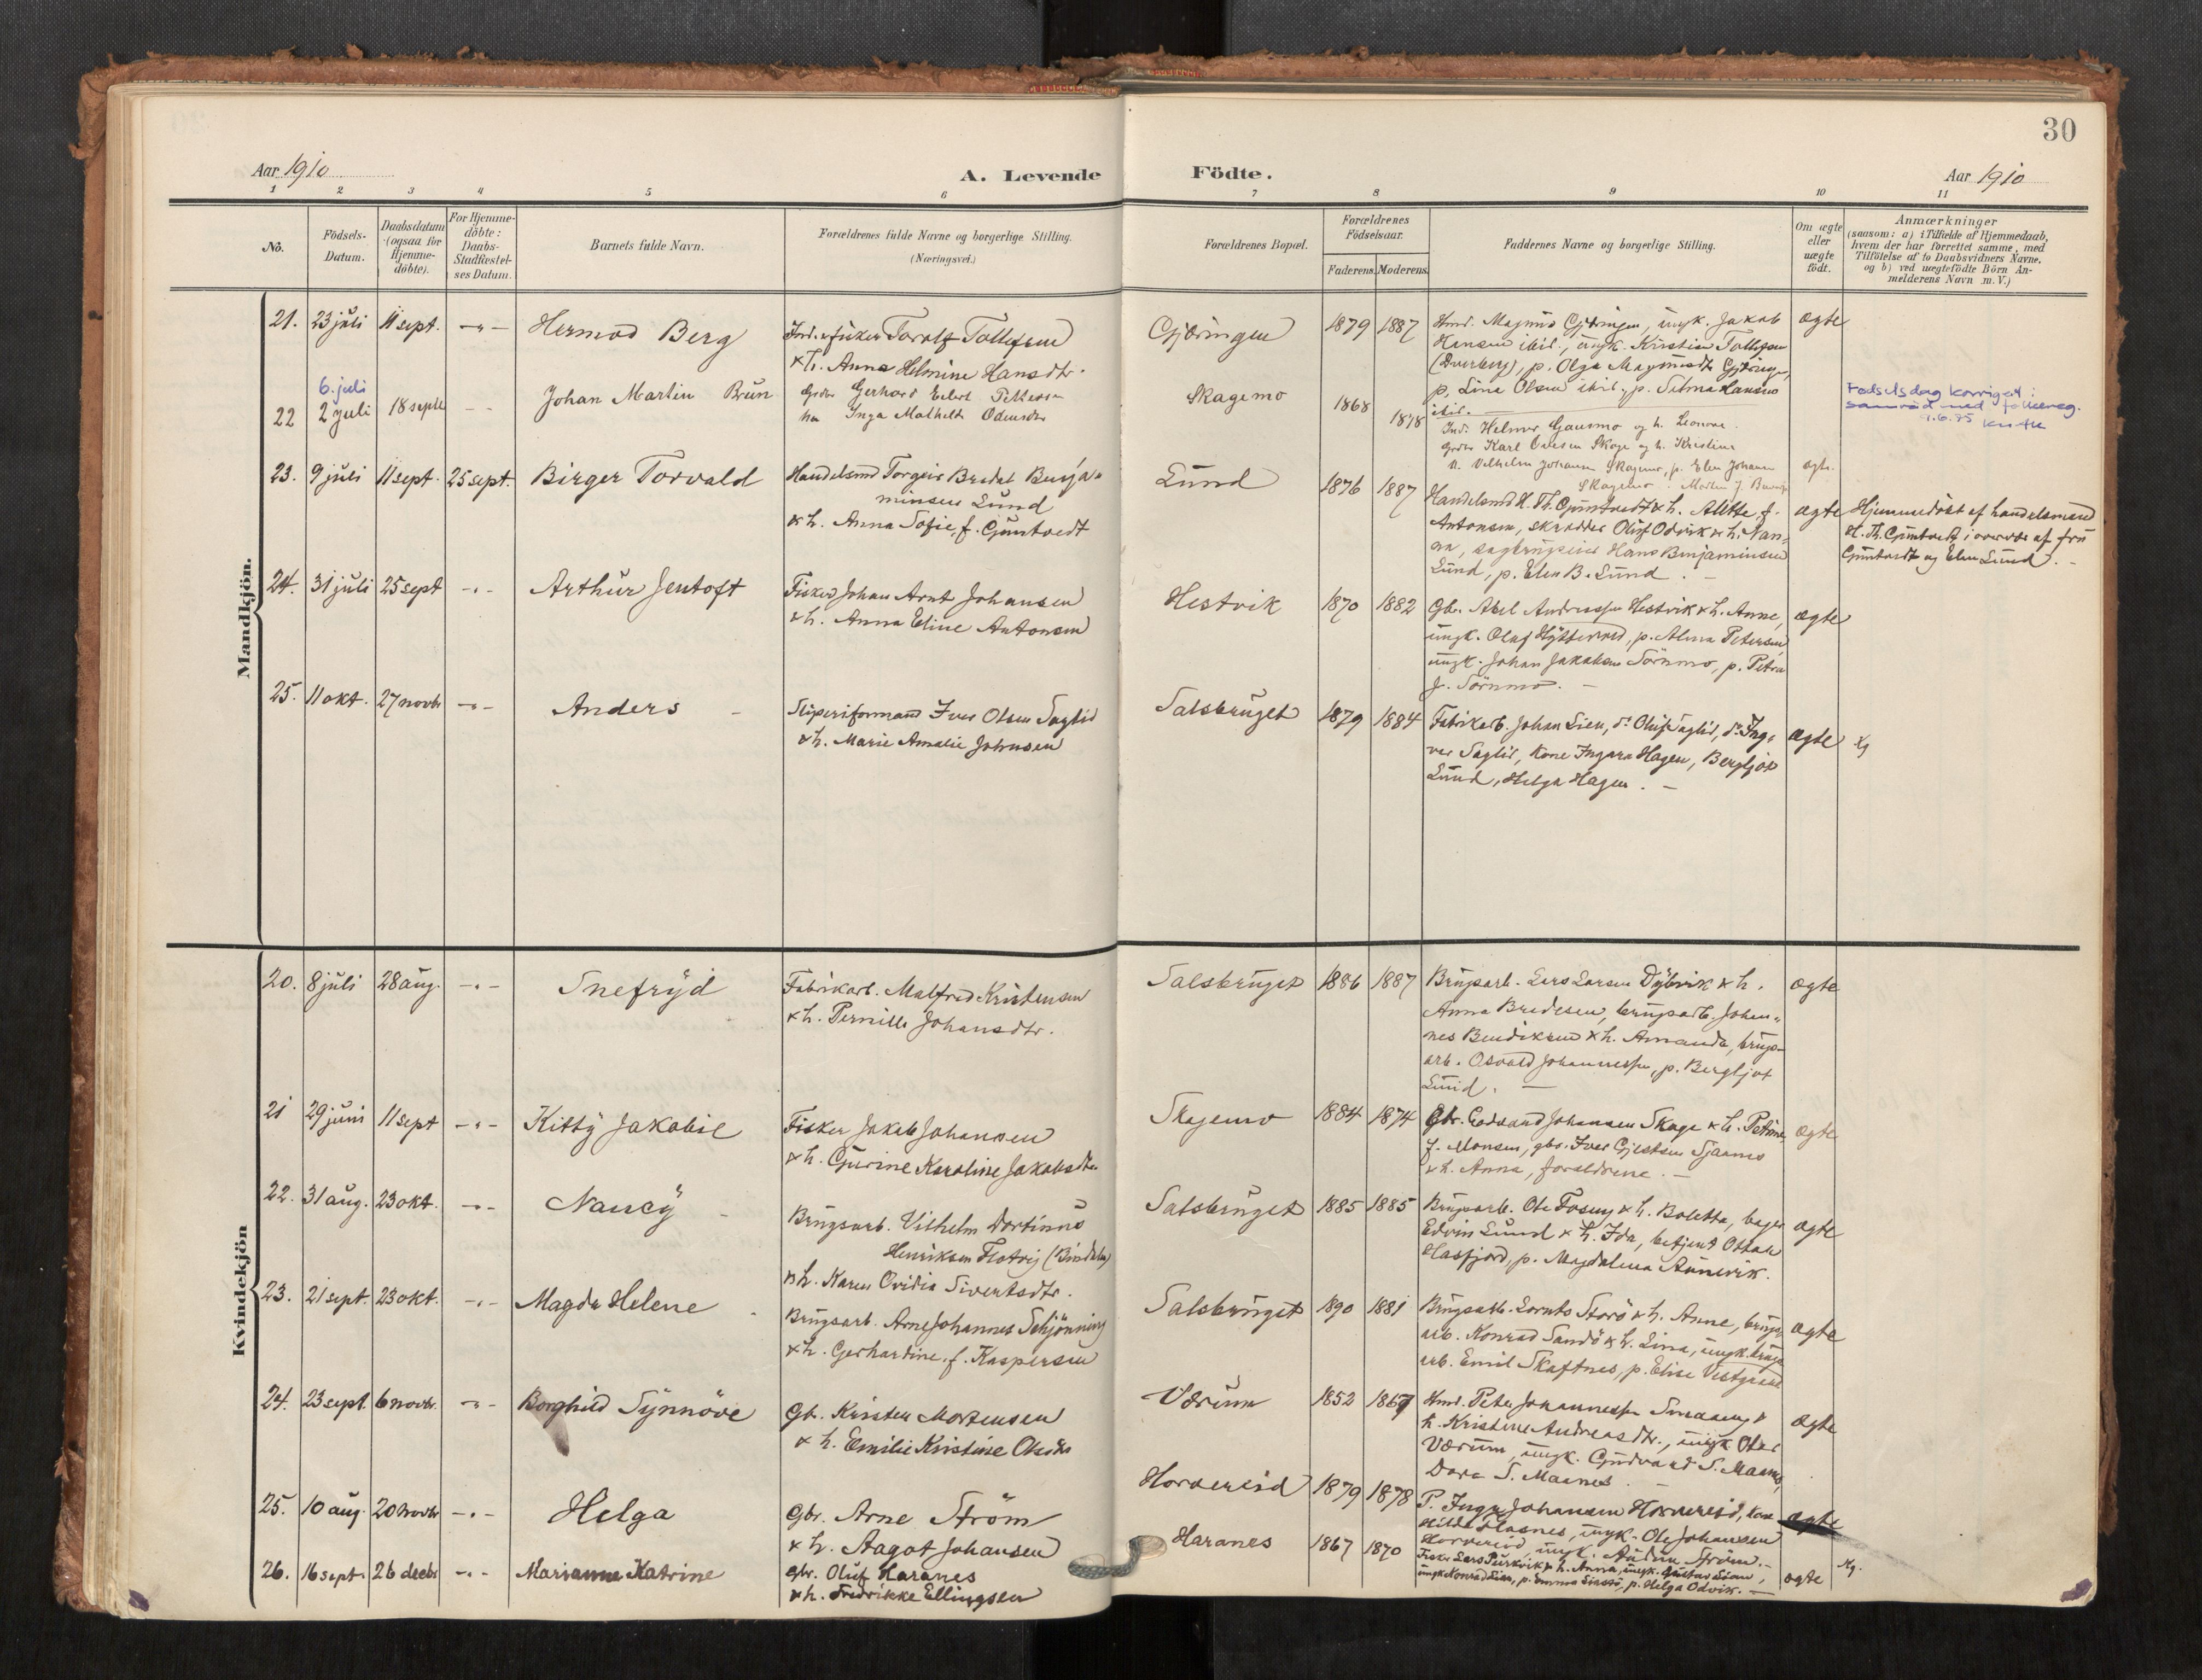 30
Aar 1910
A. Levende Födte.
Aar 1910
1 2 3 4 5 6 7 8 9 10 11
No.
Födsels-
Datum.
Daabsdatum
(ogsaa för
Hjemme-
döbte).
For Hjemme-
döbte:
Daabs-
Stadfæstel-
ses Datum.
Barnets fulde Navn.
Forældrenes fulde Navne og borgerlige Stilling.
(Næringsvei.)
Forældrenes Bopæl.
Forældrenes
Födselsaar.
Faderens. Moderens.
Faddernes Navne og borgerlige Stilling.
Om ægte
eller
uægte
födt.
Anmærkninger
(saasom: a) i Tilfælde af Hjemmedaab,
hvem der har forrettet samme, med
Tilföielse af to Daabsvidners Navne,
og b) ved uægtefödte Börn An-
melderens Navn m. V.)
Mandkjön.
21. 23 juli 11 sept. -"- Hermod Berg
Ind. & fisker Torolf Tollefsen
& h. Anna Helmine Hansdtr.
Gjæringen 1879 1887
Hmd. Magnus Gjæringen, ungk. Jakob
Hansen ibid., ungk. Kristian Tollefsen
(Dverberg), p. Olga Magnusdtr Gjæringen,
p. Lina Olsen ibid., p. Selma Hansen
ibid.
ægte
6. juli
22 2 juli 18 septb - - Johan Martin Brun
Gerhard Edert Pettersen
Inga Mathilde Odinsdtr
Skagemo 1868 1878
Ind. Helmer Gausmo og h. Leonore.
Karl Olsen Skage og h. Kristine
Vilhelm Johansen Skagemo, p. Elen Johansen
Skagemo.
ægte.
Fødselsdag korrigert i
samråd med folkereg.
9.6.85
23. 9 juli 11 sept. 25 sept. Birger Torvald
Handelsmd Torgeir Bredal Benja-
minsen Lund
& h. Anna Sofie, f. Gjuntvedt
Lund 1876 1887
Handelsmd H. Th. Gjuntvedt & h. Alette f.
Antonsen, skrædder Oluf Odvik & h. Nan-
na, sagbrugseier Hans Benjaminsen
Lund, p. Elen B. Lund. -
ægte
Hjemmedöbt af handelsmand
H. Th. Gjuntvedt i overvær af fru
Gjuntvedt og Elen Lund. -
24. 31 juli 25 sept -"- Arthur Jentoft
Fisker Johan Arnt Johansen
& h. Anna Eline Antonsen
Hestvik 1870 1882
Gbr. Abel Andreassen Hestvik & h. Anne,
ungk. Olaf Hyttervoed, p. Alma Petersen
ungk. Johan Jakobsen Sörnmo, p. Petra
J. Sörnmo. -
ægte
25. 11 okt. 27 novbr -"- Anders -
Sliperiformand Iver Olsen Saglid
& h. Marie Amalie Johnsen
Salsbruget 1879 1884
Fabrikarb. Johan Lien, do Oluf Saglid, do Ing-
var Saglid, kone Ingara Hagen, Bergljot
Lund, Helga Hagen. -
ægte
Kvindekjön
20. 8 juli 28 aug. -"- Snefryd
Fabrikarb. Malfred Kristensen
& h. Pernille Johansdtr.
Salsbruget 1886 1887
Brugsarb. Lars Larsen Dybvik & h.
Anna Bredesen, brugsarb. Johan-
nes Bendiksen & h. Amanda, brugs-
arb. Osvald Johannessen, p. Bergljot
Lund. -
ægte
21 29 juni 11 sept -"- Kitty Jakobie
Fisker Jakob Johansen
& h. Gurine Karoline Jakobsdtr
Skagemo 1884 1874
Gbr. Johansen Skage & h. Petrine
f. Monsen, gbr. Iver Gjestsen Sjaamo
& h. Anna, forældrene. -
ægte
22. 31 aug. 23 okt. -"- Nancy -
Brugsarb. Vilhelm Dortinus
Henriksen Flotvig (Bindalen)
& h. Karen Ovidia Sivertsdtr.
Salsbruget 1885 1885
Brugsarb. Ole Fosung & h. Boletta, bager
Edvin Lund & h. Ida, betjent Ottar
Hasfjord, p. Magdalena Aunevik.
ægte
23. 21 sept. 23 okt. -"- Magda Helene -
Brugsarb. Arne Johannes Schjönning
& h. Gerhardine, f. Kaspersen
Salsbruget 1890 1881
Brugsarb. Lornts Storö & h. Anne, brugs-
arb. Konrad Sandö & h. Lina, ungk. brugs
arb. Emil Skaftnes, p. Elise Vestgaard
ægte
24. 23 sept 6 novbr. -"- Borghild Synnöve
Gb. Kristen Mortensen
& h. Emilie Kristine Olsdtr
Værum 1852 1867
Hmd. Peter Johannessen Smaaung &
h. Kristine Andreasdtr., ungk. Olav
Værum, ungk. Gudvard S. Maanes,
Dora S. Maanes. -
ægte
25. 10 aug. 20 novbr -"- Helga
Gbr. Arne Ström
& h. Aagot Johansen
Horvereid 1879 1878
P. Inga Johansen Horvereid, kone
Hilda Hasnes, ungk. Ole Johansen
Horvereid, ungk. Audun Ström. -
ægte
26. 16 sept. 26 decbr -"- Marianne Katrine
gbr. Oluf Haranes
& h. Fredrikke Ellingsen
Haranes 1867 1870
Fisker Lars Purkvik & h. Anna, ungk. Gustav Sören,
ungk. Konrad Lian, p. Emma Liastö, p. Helga Odvik. -
ægte